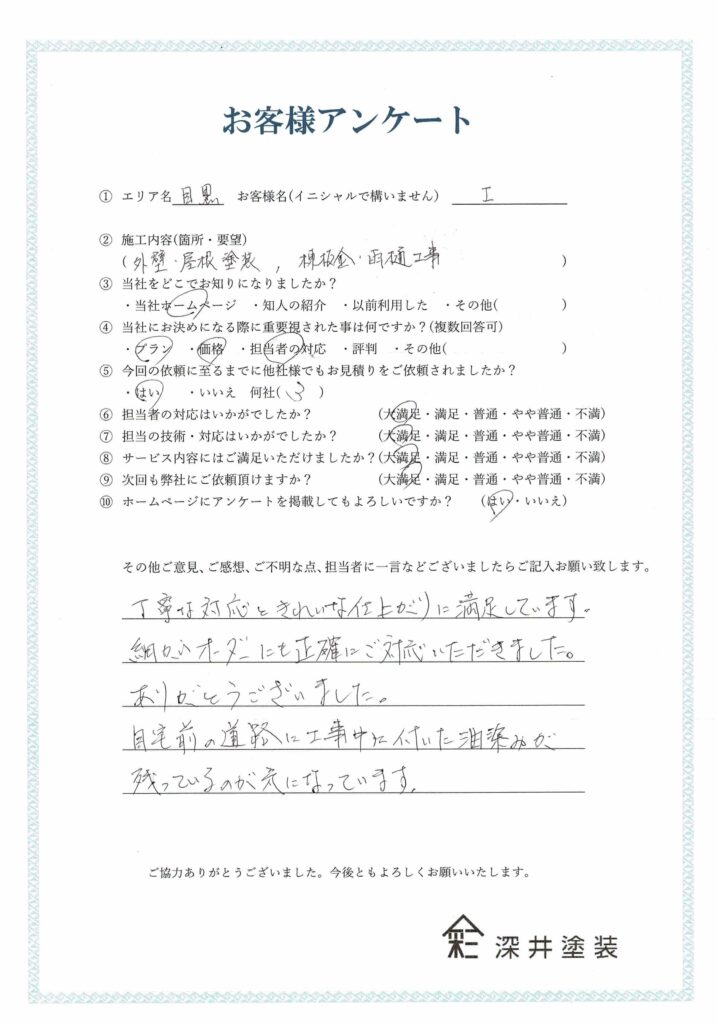 お客様アンケート
① エリア名 目黒 お客様名(イニシャルで構いません) I
② 施工内容(箇所・要望)
(外壁・屋根塗装, 棟板金・雨樋工事)
③ 当社をどこでお知りになりましたか?
・当社ホームページ ・知人の紹介 ・以前利用した ・その他( )
④ 当社にお決めになる際に重要視された事は何ですか?(複数回答可)
・プラン ・価格 ・担当者の対応 ・評判 ・その他( )
⑤ 今回の依頼に至るまでに他社様でもお見積りをご依頼されましたか?
・はい ・いいえ 何社( 3 )
⑥ 担当者の対応はいかがでしたか? (大満足・満足・普通・やや普通・不満)
⑦ 担当の技術・対応はいかがでしたか? (大満足・満足・普通・やや普通・不満)
⑧ サービス内容にはご満足いただけましたか?(大満足・満足・普通・やや普通・不満)
⑨ 次回も弊社にご依頼頂けますか? (大満足・満足・普通・やや普通・不満)
⑩ ホームページにアンケートを掲載してもよろしいですか? (はい・いいえ)
その他ご意見、ご感想、ご不明な点、担当者に一言などございましたらご記入お願い致します。
丁寧な対応ときれいな仕上がりに満足しています。
細かいオーダーにも正確にご対応いただきました。
ありがとうございました。
自宅前の道路に工事中に付いた油染みが
残っているのが気になっています。
ご協力ありがとうございました。今後ともよろしくお願いいたします。
深井塗装